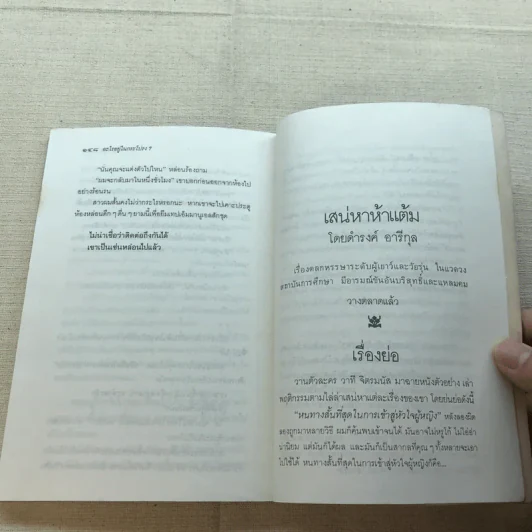 ๑๔๘ อะไรอยู่ในกระโปรง ?
“นั่นคุณจะแต่งตัวไปไหน” หล่อนร้องถาม
“ผมจะกลับมาในหนึ่งชั่วโมง” เขาบอกก่อนออกจากห้องไป
อย่างร้อนรน
สาวผมสั้นคงไม่ว่ากระไรหรอกนะ หากเขาจะไปเคาะประตู
ห้องหล่อนดึก ๆ ดื่น ๆ ยามนี้เพื่อยืมเทปเอ็มมานูเอลสักชุด
ไม่น่าเชื่อว่าติดต่อถึงกันได้
เขาเป็นเช่นหล่อนไปแล้ว
เสน่หาห้าแต้ม
โดยดำรงค์ อารีกุล
เรื่องตลกหรรษาระดับผู้เยาว์และวัยรุ่น ในแวดวง
สถาบันการศึกษา มีอารมณ์ขันอันบริสุทธิ์และแหลมคม
วางตลาดแล้ว
เรื่องย่อ
วานตัวละคร วาที จิตรมนัส มาฉายหนังตัวอย่าง เล่า
พฤติกรรมตามไล่ล่าเสน่หาแต่ละเรื่องของเขา โดยย่นย่อดังนี้
“หนทางสั้นที่สุดในการเข้าสู่หัวใจผู้หญิง” หลังลองผิด
ลองถูกมาหลายวิธี ผมก็ค้นพบเข้าจนได้ มันอาจไม่หรูโก้ ไม่ไฮอ่า
นานิยม แต่มันก็ได้ผล และมันก็เป็นสากลที่คุณ ๆ ทั้งหลายจะเอา
ไปใช้ได้ หนทางสั้นที่สุดในการเข้าสู่หัวใจผู้หญิงก็คือ...